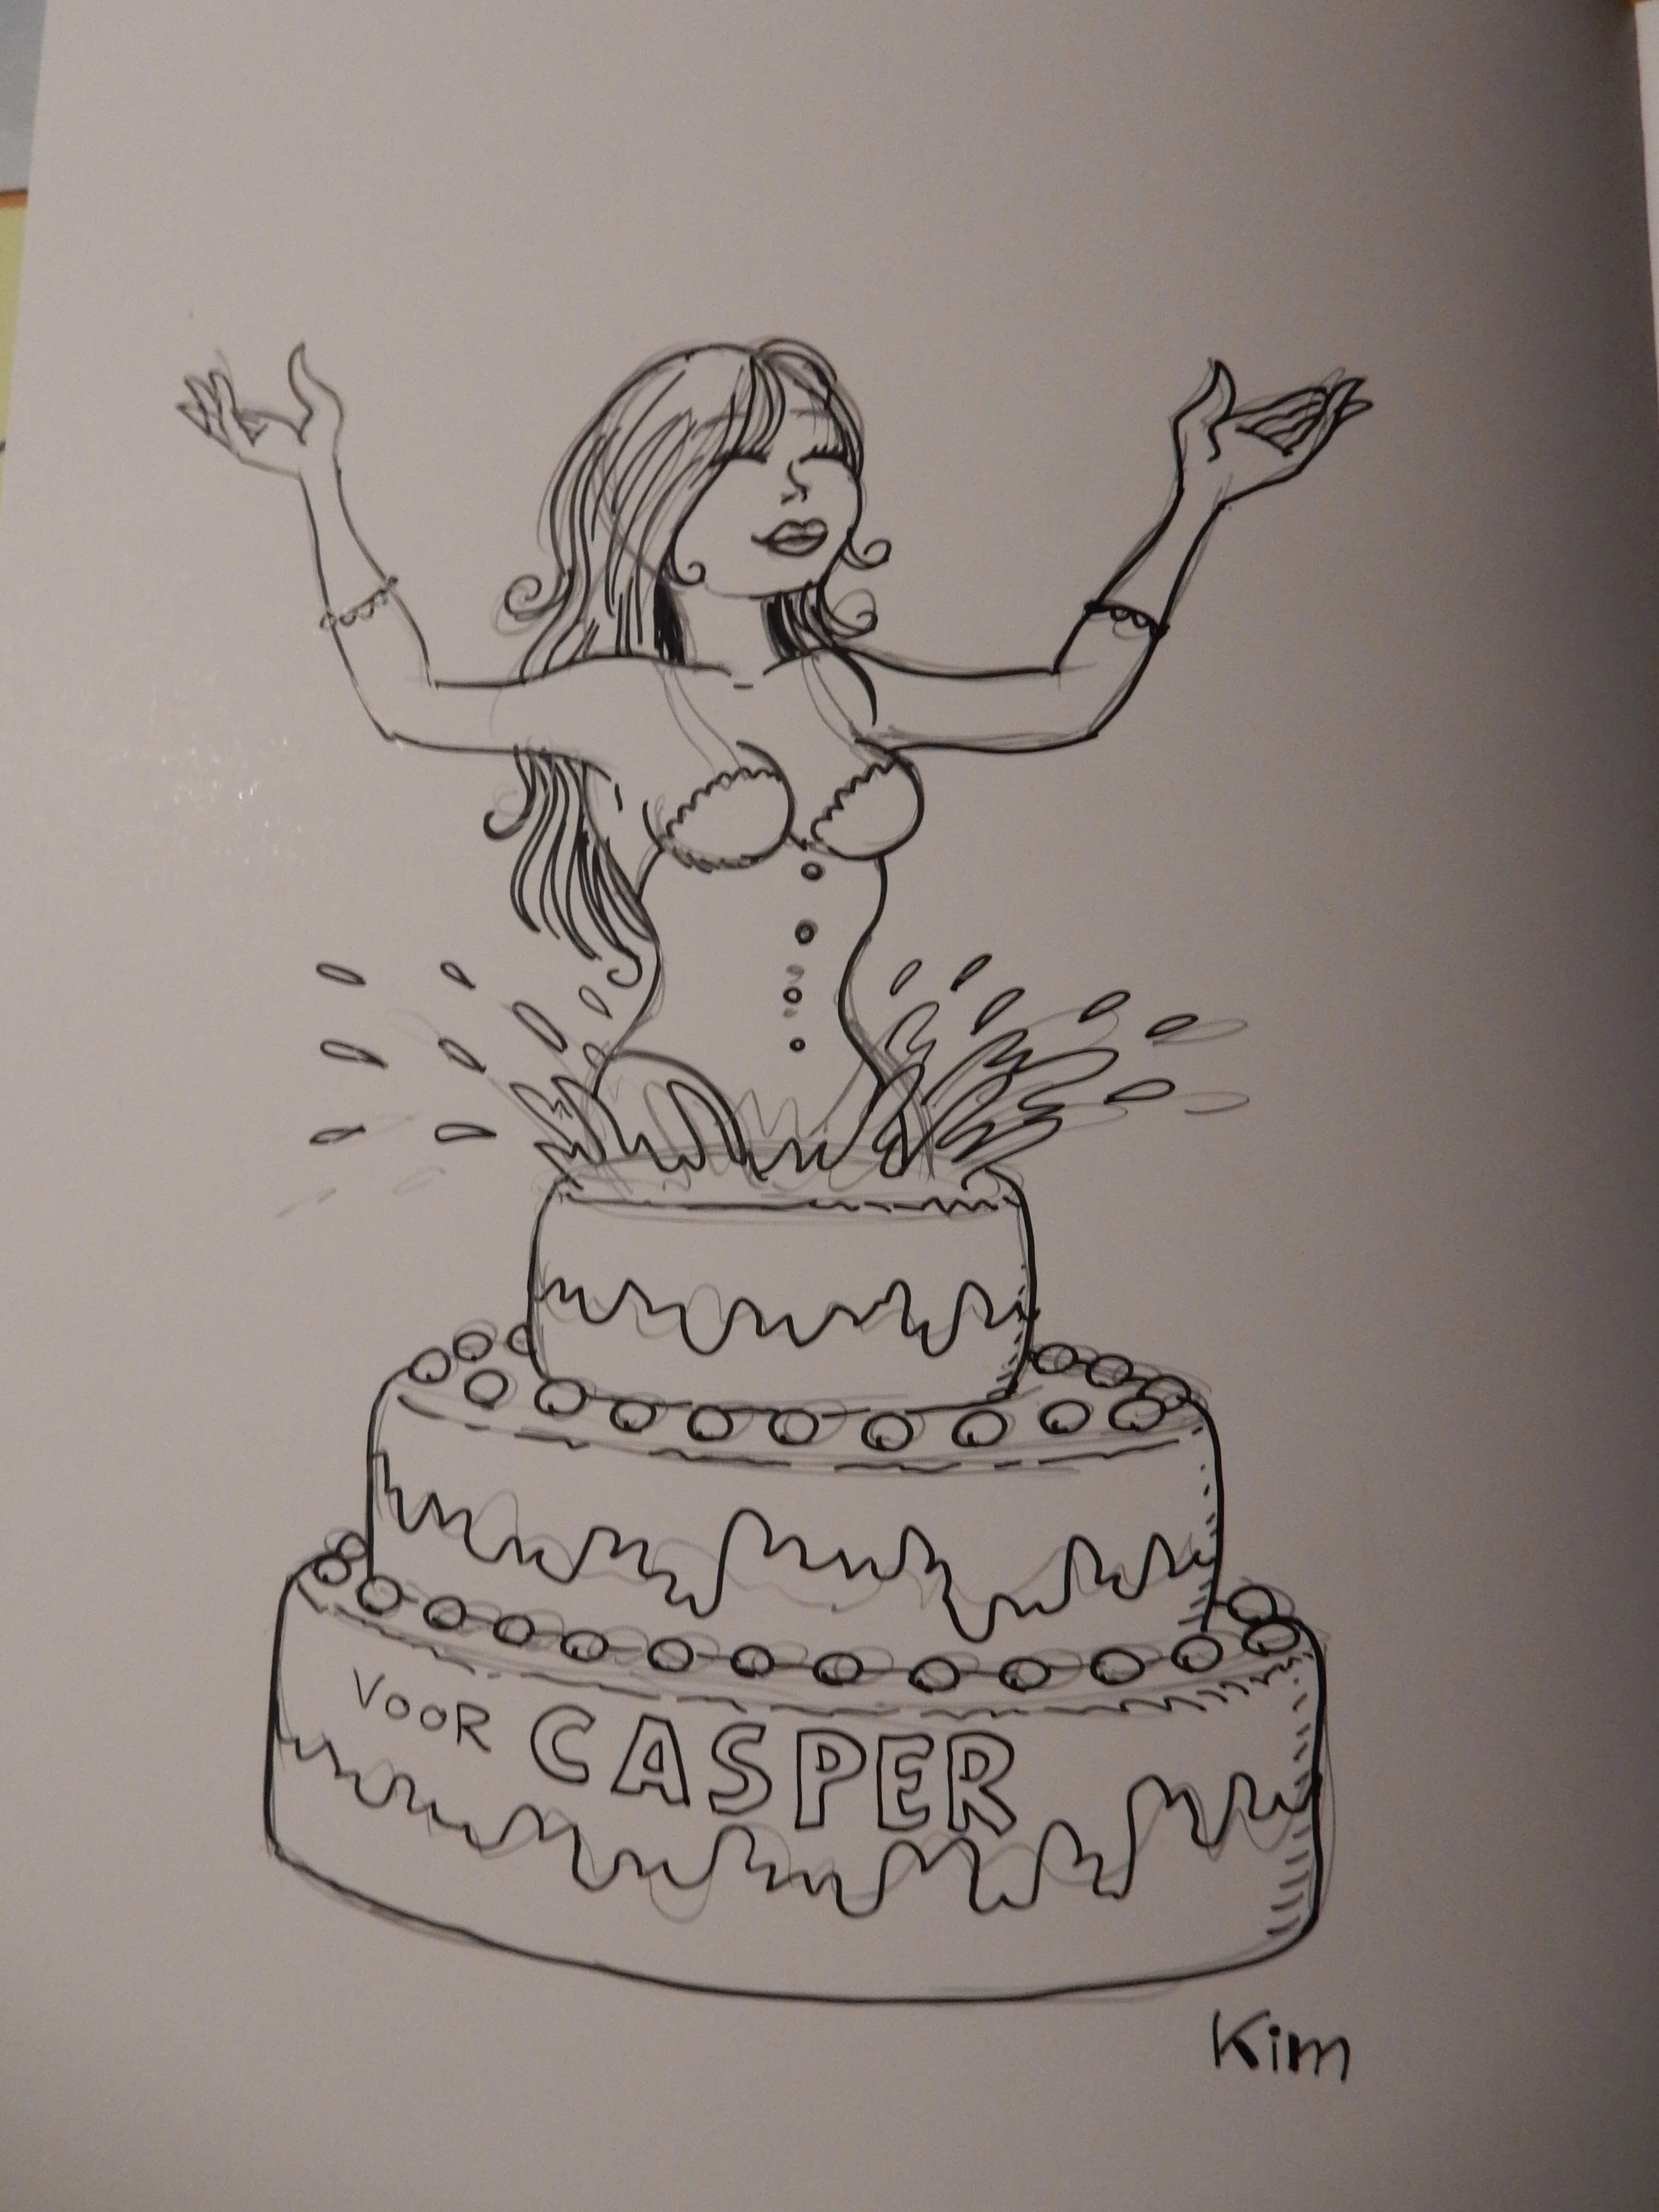 VOOR CASPER
Kim